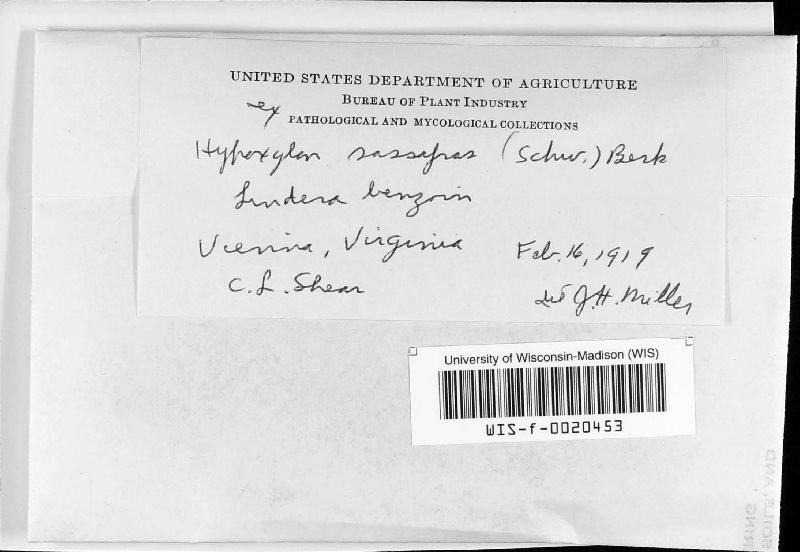 UNITED STATES DEPARTMENT OF AGRICULTURE
BUREAU OF PLANT INDUSTRY
ex
PATHOLOGICAL AND MYCOLOGICAL COLLECTIONS
Hypoxylon sassafras (Schw.) Berk
Lindera benzoin
Vienna, Virginia Feb. 16, 1919
C. L. Shear det J. H. Miller
University of Wisconsin-Madison (WIS)
WIS-f-0020453
SOILS, AND
RING